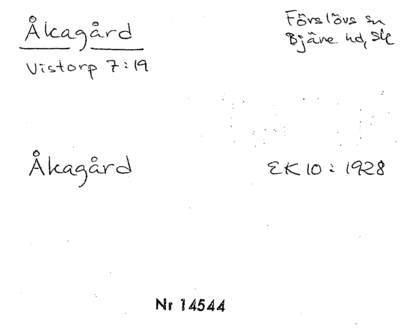 Åkagård
Förslövs sn
Vistorp 7:19
Bjäre hd, Sk
Åkagård
EK 10 : 1928
Nr 14544